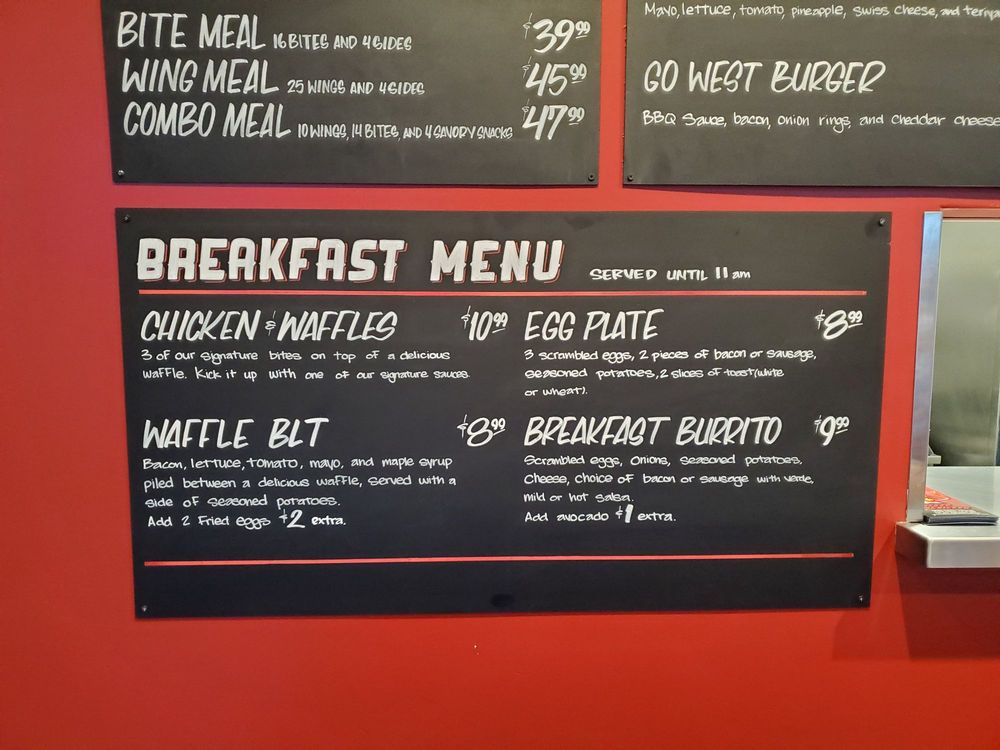 BITE MEAL 16 BITES AND 4 SIDES $39.99
WING MEAL 25 WINGS AND 4 SIDES $45.99
COMBO MEAL 10 WINGS, 14 BITES, AND 4 SAVORY SNACKS $47.99
Mayo, lettuce, tomato, pineapple, swiss cheese, and
GO WEST BURGER
BBQ Sauce, bacon, onion rings, and cheddar cheese
BREAKFAST MENU SERVED UNTIL 11 am
CHICKEN & WAFFLES $10.99
3 of our signature bites on top of a delicious
waffle. Kick it up with one of our signature sauces.
WAFFLE BLT $8.99
Bacon, lettuce, tomato, mayo, and maple syrup
piled between a delicious waffle, served with a
side of seasoned potatoes.
Add 2 Fried eggs $2 extra.
EGG PLATE $8.99
3 scrambled eggs, 2 pieces of bacon or sausage,
seasoned potatoes, 2 slices of toast (white
or wheat).
BREAKFAST BURRITO $9.99
Scrambled eggs, onions, seasoned potatoes,
Cheese, choice of bacon or sausage with verde,
mild or hot salsa.
Add avocado $1 extra.